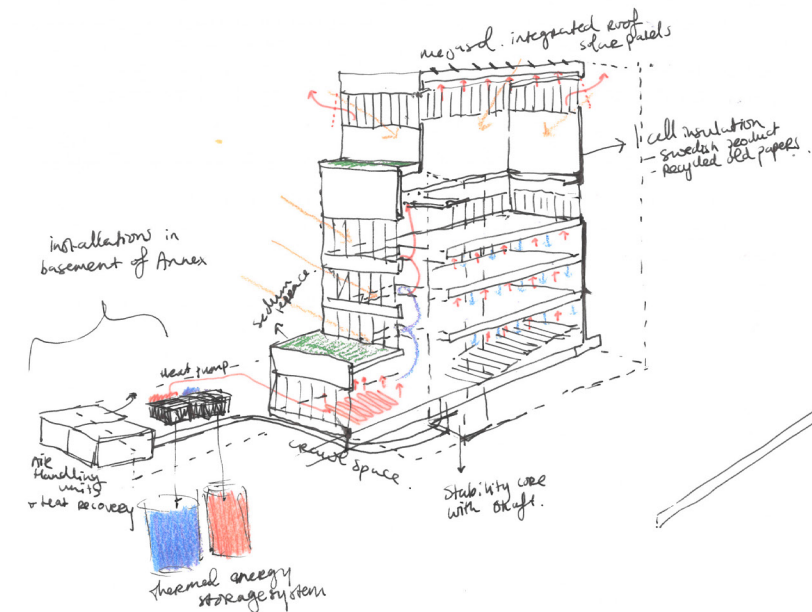 integrated roof
solar panels
cell insulation
- Swedish product
- Recycled old papers.
installations in
basement of Annex
Heat pump
Air
Handling
units
+ Heat recovery
Space.
Stability core
with shaft.
thermal energy
storage system